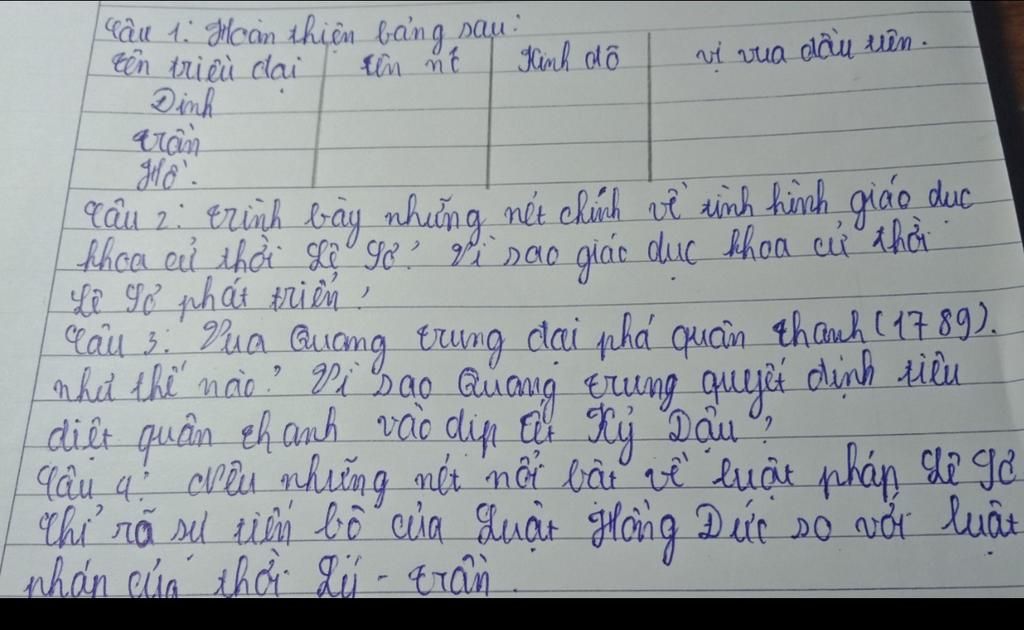 Câu 1: Hoàn thiện bảng sau:
tên triều đại tên nc Kinh đô vị vua đầu tiên.
Đinh
trần
Hồ.
Câu 2: trình bày những nét chính về tình hình giáo dục
khoa cử thời Lê Sơ? Vì sao giáo dục khoa cử thời
Lê Sơ phát triển?
Câu 3: Vua Quang trung đại phá quân thanh (1789).
như thế nào? Vì sao Quang trung quyết định tiêu
diệt quân thanh vào dịp tết Kỷ Dậu?
Câu 4: Nêu những nét nổi bật về luật pháp Lê Sơ
Chỉ rõ sự tiến bộ của Luật Hồng Đức so với luật
pháp của thời Lý - trần.